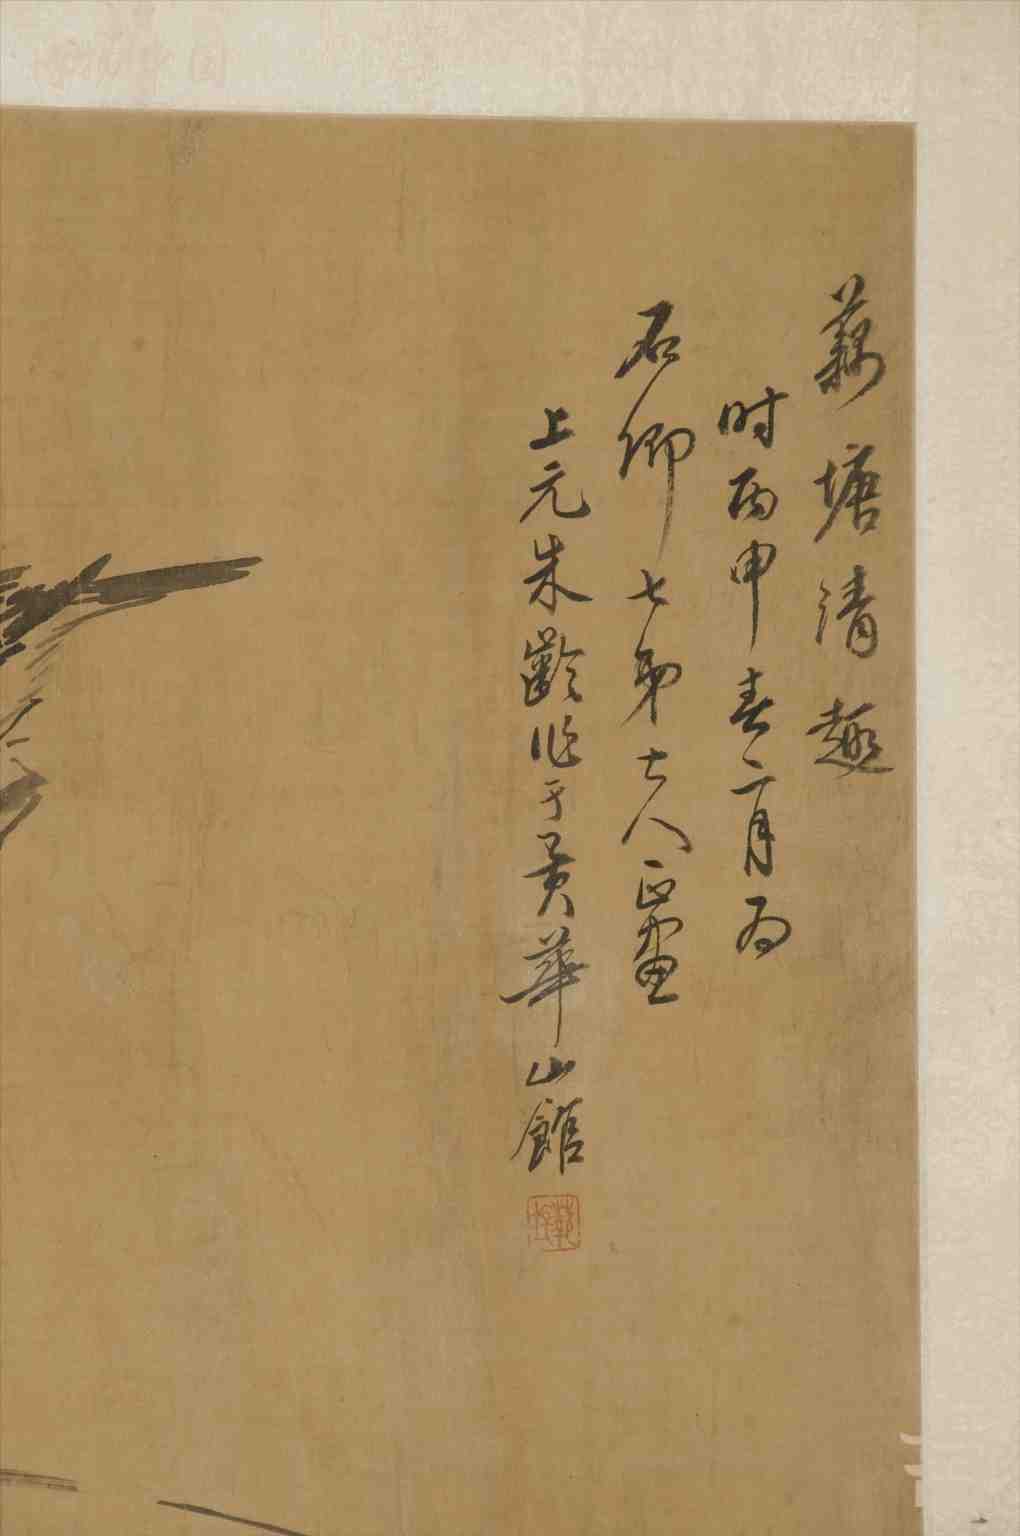 藕塘清趣
时丙申春二月为
石卿七弟大人正画
上元朱齡作于黄華山館